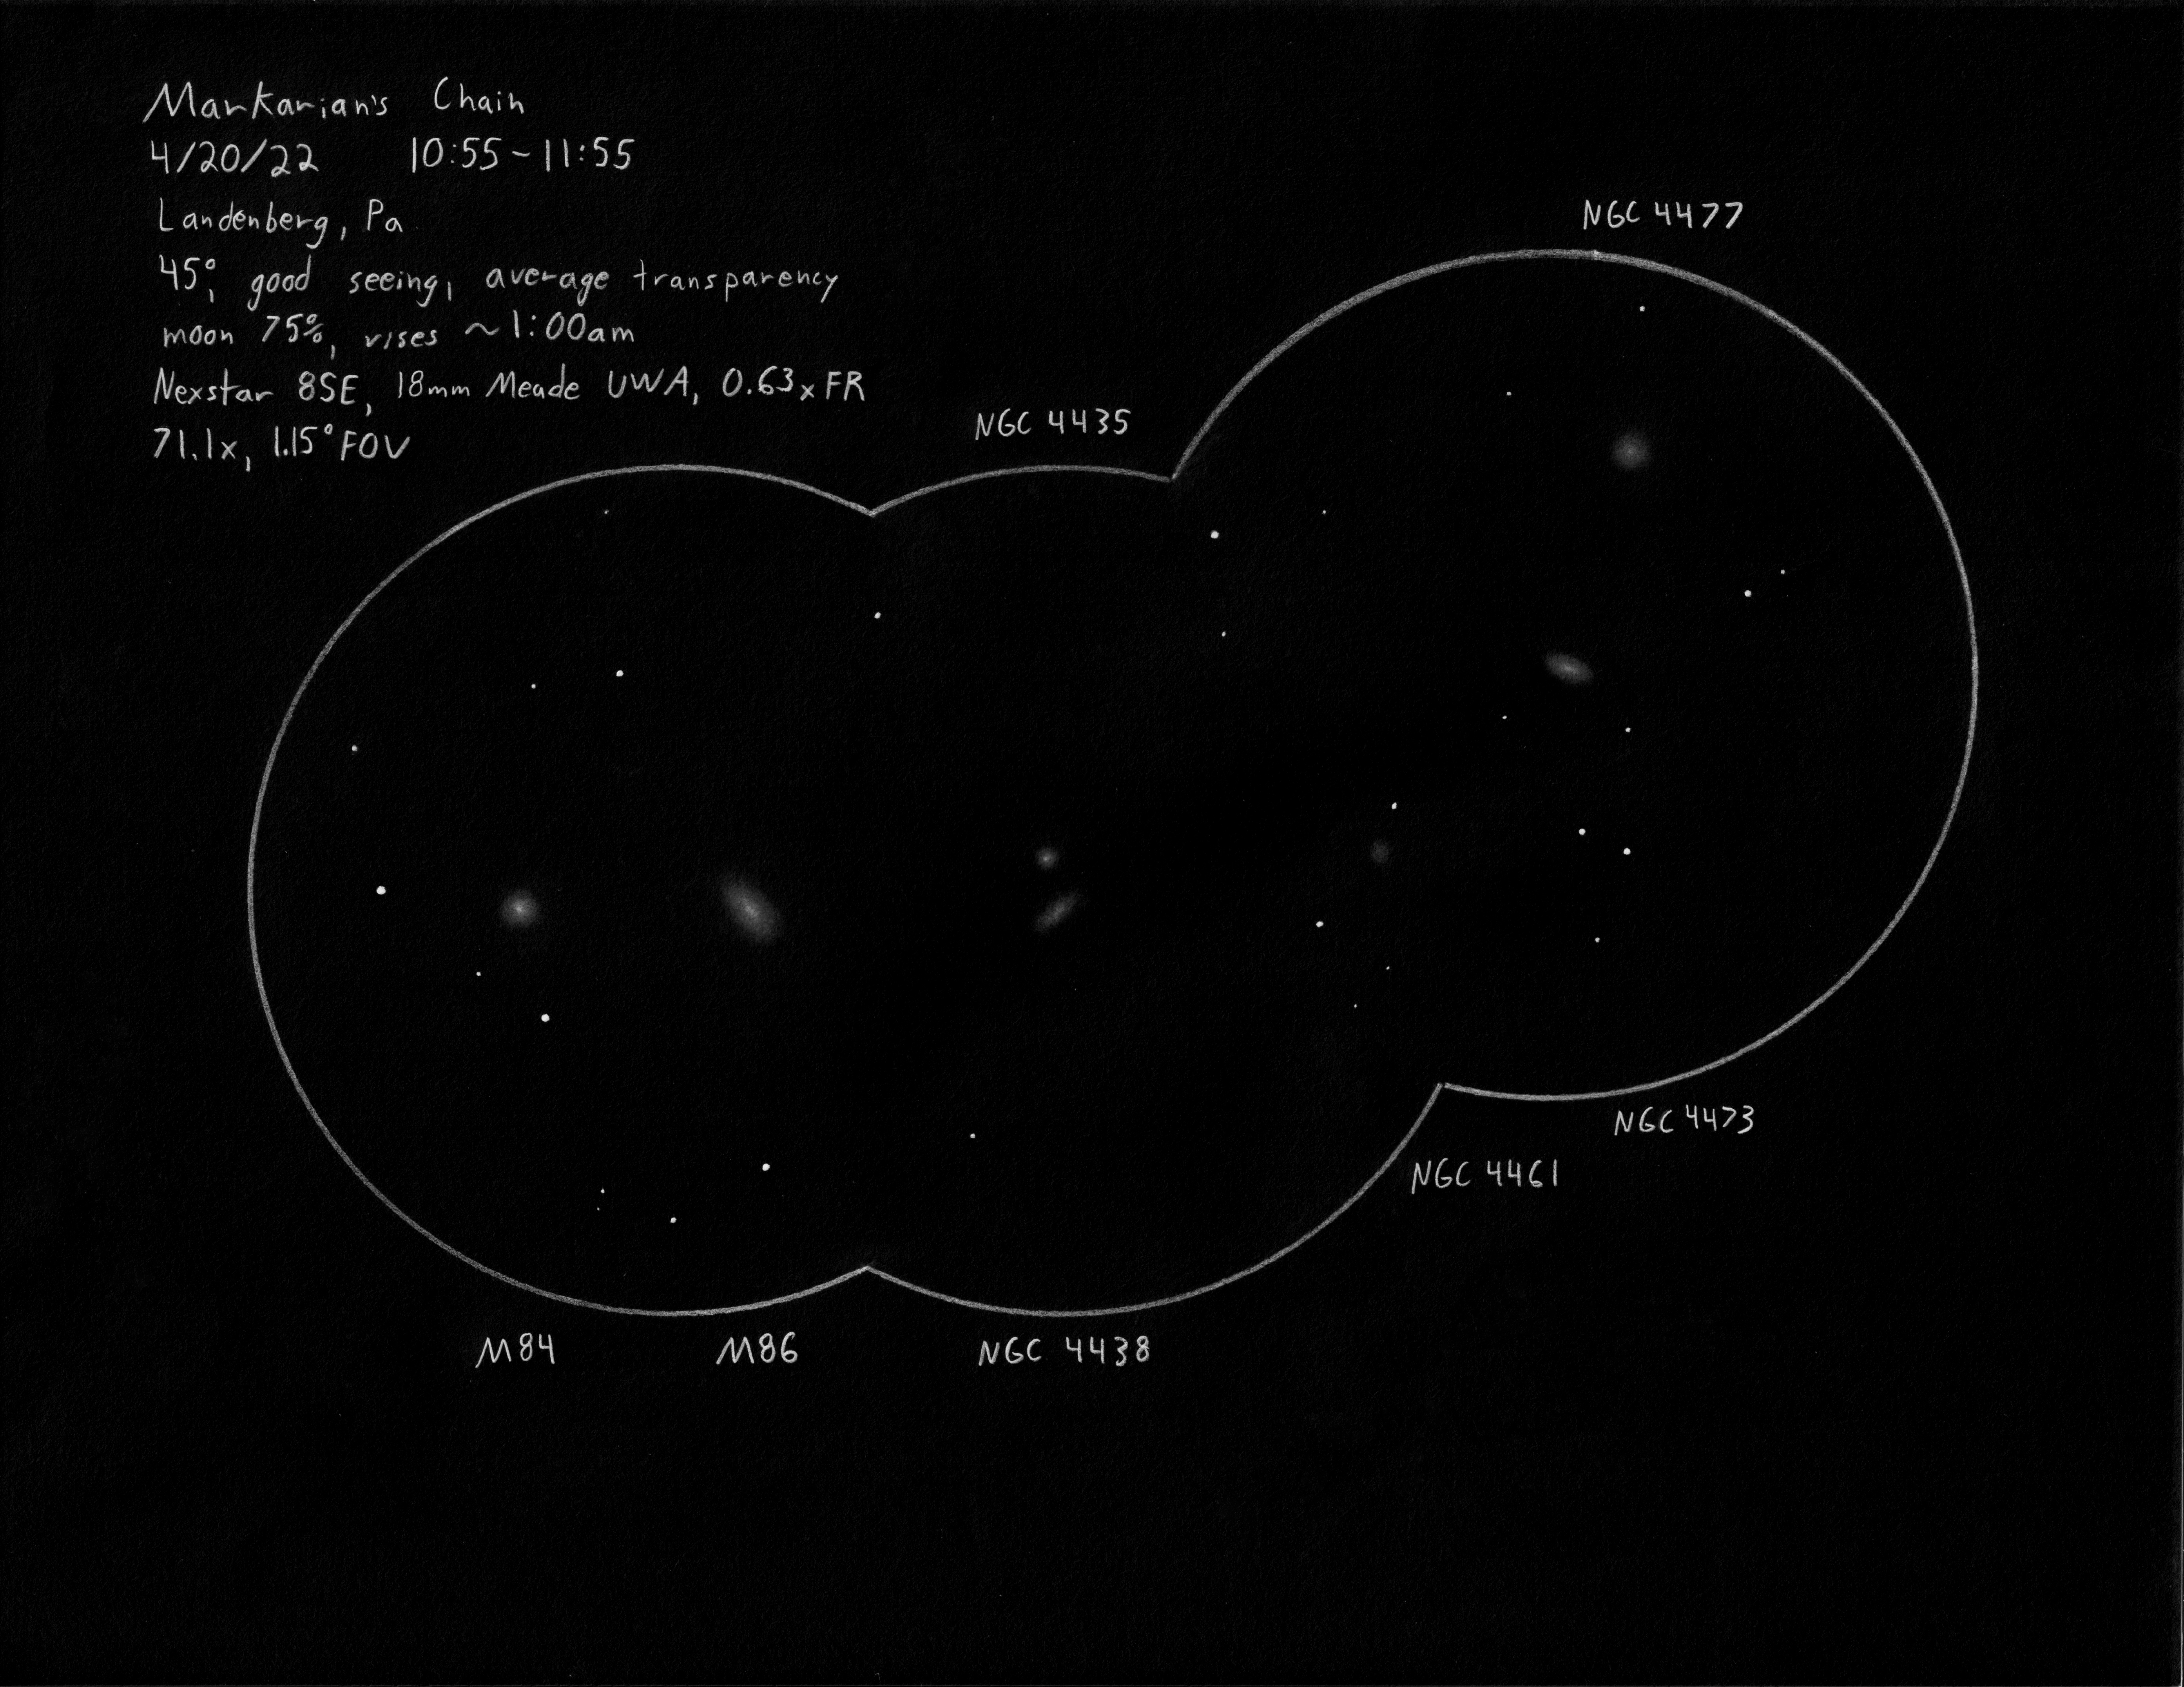 Markarian's Chain
4/20/22 10:55~11:55
Landenberg, Pa
45°, good seeing, average transparency
moon 75%, rises ~1:00am
Nexstar 8SE, 18mm Meade UWA, 0.63x FR
71.1x, 1.15° FOV
NGC 4477
NGC 4435
NGC 4473
NGC 4461
M84 M86 NGC 4438